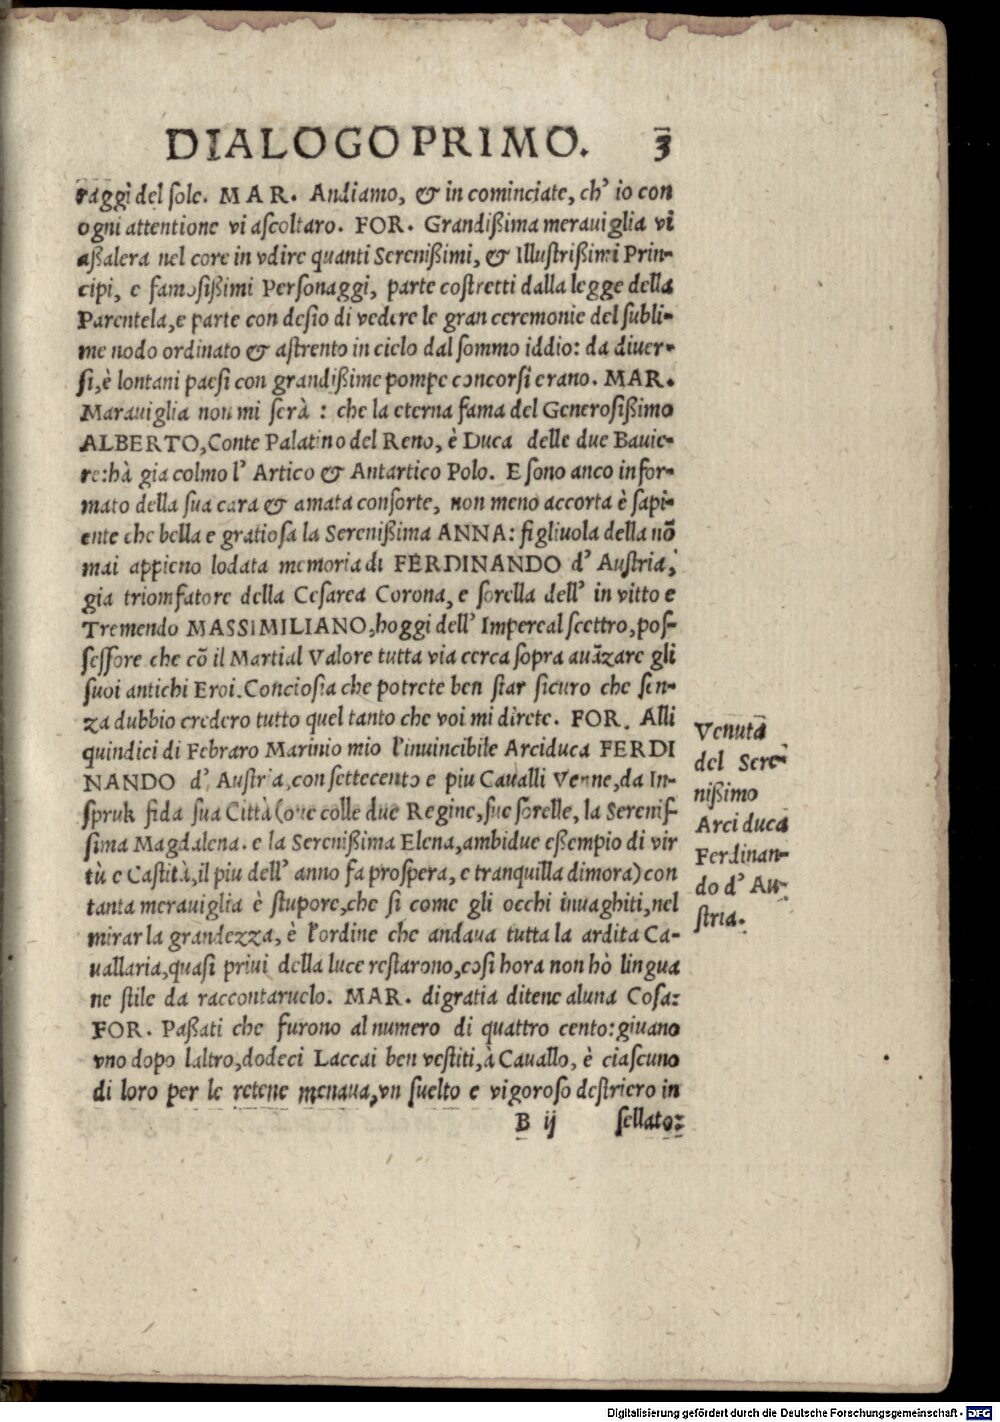 DIALOGO PRIMO. 3
raggi del sole. MAR. Andiamo, & in cominciate, ch' io con
ogni attentione vi ascoltaro. FOR. Grandißima merauiglia vi
aßalera nel core in vdire quanti Serenißimi, & Illustrißimi Prin-
cipi, e famosißimi Personaggi, parte costretti dalla legge della
Parentela, e parte con desio di vedere le gran ceremonie del subli-
me nodo ordinato & astrento in cielo dal sommo iddio: da diuer-
si, è lontani paesi con grandißime pompe concorsi erano. MAR.
Marauiglia non mi serà : che la eterna fama del Generosißimo
ALBERTO, Conte Palatino del Reno, è Duca delle due Bauie-
re: hà gia colmo l' Artico & Antartico Polo. E sono anco infor-
mato della sua cara & amata consorte, non meno accorta è sapi-
ente che bella e gratiosa la Serenißima ANNA: figliuola della nō
mai appieno lodata memoria di FERDINANDO d' Austria,
gia triomfatore della Cesarea Corona, e sorella dell' in vitto e
Tremendo MASSIMILIANO, hoggi dell' Impereal scettro, pos-
sessore che cō il Martial Valore tutta via cerca sopra auāzare gli
suoi antichi Eroi. Conciosia che potrete ben star sicuro che sen-
za dubbio credero tutto quel tanto che voi mi direte. FOR. Alli
quindici di Febraro Marinio mio l'inuincibile Arciduca FERDI
NANDO d' Austria, con settecento e piu Caualli Venne, da In-
spruk fida sua Città (oue colle due Regine, sue sorelle, la Serenis-
sima Magdalena. e la Serenißima Elena, ambidue eßempio di vir
tù e Castità, il piu dell' anno fa prospera, e tranquilla dimora) con
tanta merauiglia è stupore, che si come gli occhi inuaghiti, nel
mirar la grandezza, è l'ordine che andaua tutta la ardita Ca-
uallaria, quasi priui della luce restarono, cosi hora non hò lingua
ne stile da raccontaruelo. MAR. di gratia ditene aluna Cosa:
FOR. Paßati che furono al numero di quattro cento: giuano
vno dopo laltro, dodeci Laccai ben vestiti, à Cauallo, è ciascuno
di loro per le retene menaua, vn suelto e vigoroso destriero in
B ij sellato:
Venuta
del Sere-
nißimo
Arciduca
Ferdinan-
do d' Au-
stria.
Digitalisierung gefördert durch die Deutsche Forschungsgemeinschaft - DFG